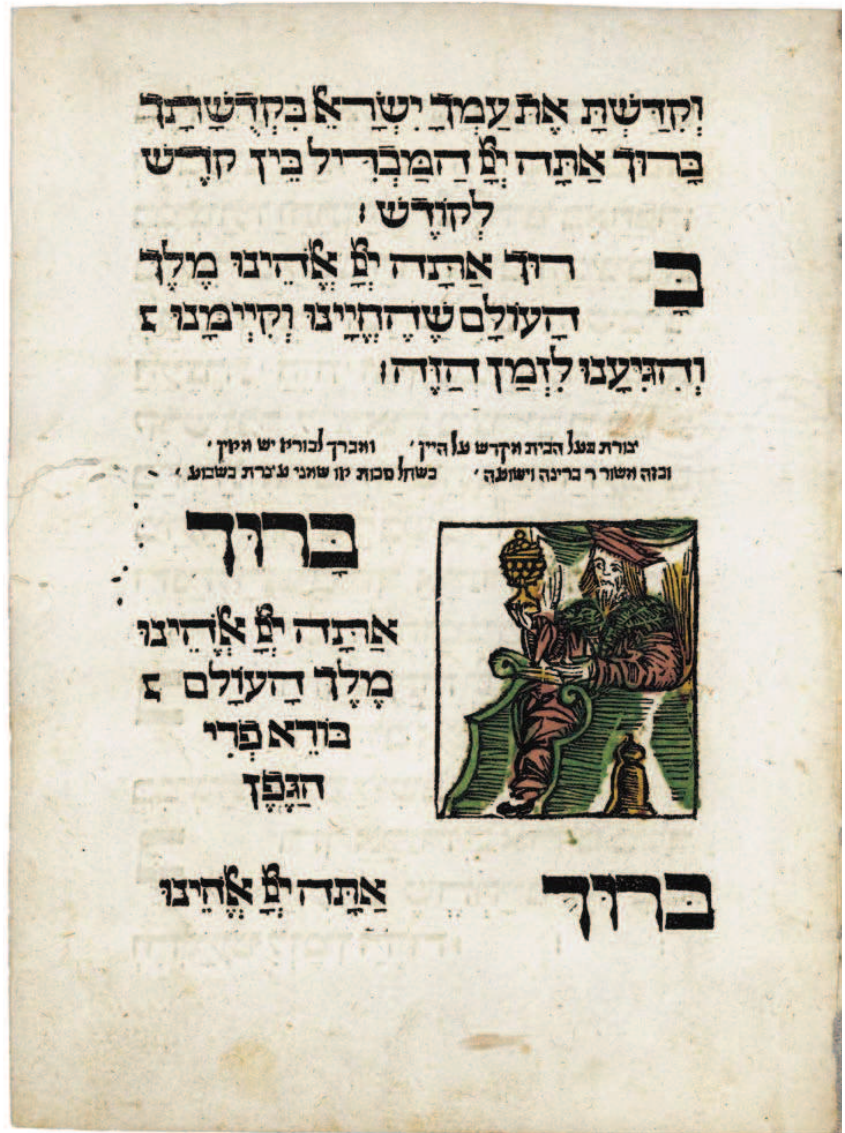 וְקִדַּשְׁתָּ אֶת עַמְּךָ יִשְׂרָאֵל בִּקְדֻשָׁתָךְ
בָּרוּךְ אַתָּה יְיָ הַמַּבְדִּיל בֵּין קֹדֶשׁ
לְקוֹדֶשׁ :
בָּרוּךְ אַתָּה יְיָ אֱלֹהֵינוּ מֶלֶךְ
הָעוֹלָם שֶׁהֶחֱיָינוּ וְקִיְּימָנוּ
וְהִגִּיעָנוּ לִזְמַן הַזֶּה :
צורת בעל הבית מקדש על היין ׳ ומברך לבורא יש מאין ׳
ובזה משורר ברינה וישועה ׳ כשחל סכות או שמני עצרת בשבוע ׳
בָּרוּךְ
אַתָּה יְיָ אֱלֹהֵינוּ
מֶלֶךְ הָעוֹלָם
בּוֹרֵא פְּרִי
הַגֶּפֶן
ברוך אַתָּה יְיָ אֱלֹהֵינוּ